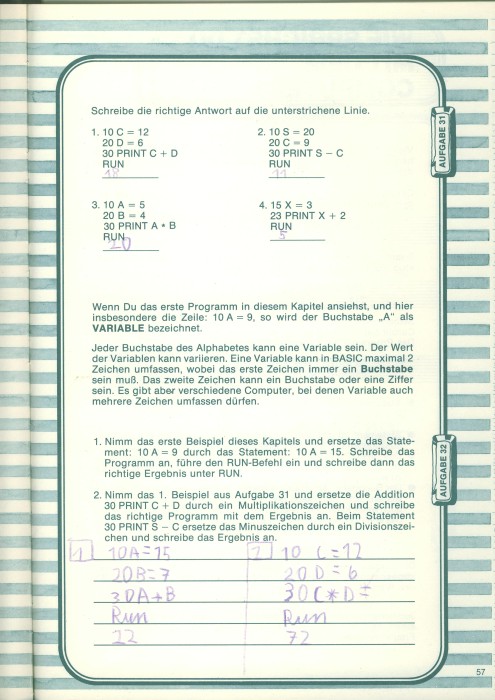 Schreibe die richtige Antwort auf die unterstrichene Linie.
AUFGABE 31
1. 10 C = 12
20 D = 6
30 PRINT C + D
RUN
18
2. 10 S = 20
20 C = 9
30 PRINT S – C
RUN
11
3. 10 A = 5
20 B = 4
30 PRINT A * B
RUN
20
4. 15 X = 3
23 PRINT X + 2
RUN
5
Wenn Du das erste Programm in diesem Kapitel ansiehst, und hier
insbesondere die Zeile: 10 A = 9, so wird der Buchstabe „A“ als
VARIABLE bezeichnet.
Jeder Buchstabe des Alphabetes kann eine Variable sein. Der Wert
der Variablen kann variieren. Eine Variable kann in BASIC maximal 2
Zeichen umfassen, wobei das erste Zeichen immer ein Buchstabe
sein muß. Das zweite Zeichen kann ein Buchstabe oder eine Ziffer
sein. Es gibt aber verschiedene Computer, bei denen Variable auch
mehrere Zeichen umfassen dürfen.
AUFGABE 32
1. Nimm das erste Beispiel dieses Kapitels und ersetze das State-
ment: 10 A = 9 durch das Statement: 10 A = 15. Schreibe das
Programm an, führe den RUN-Befehl ein und schreibe dann das
richtige Ergebnis unter RUN.
2. Nimm das 1. Beispiel aus Aufgabe 31 und ersetze die Addition
30 PRINT C + D durch ein Multiplikationszeichen und schreibe
das richtige Programm mit dem Ergebnis an. Beim Statement
30 PRINT S – C ersetze das Minuszeichen durch ein Divisionszei-
chen und schreibe das Ergebnis an.
1 10A=15
20B=7
30A+B
Run
22
2 10 C=12
20 D=6
30C*D=
Run
72
57